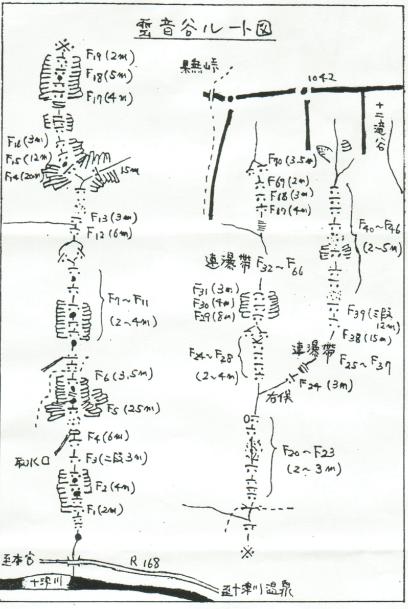 雲音谷ルート図
F19 (2m)
F18 (5m)
F17 (4m)
F16 (3m)
F15 (12m)
F14 (20m)
15m
F13 (3m)
F12 (6m)
F7〜F11
(2〜4m)
F6 (3.5m)
F5 (25m)
F4 (6m)
取水口
F3 (二段3m)
F2 (4m)
F1 (2m)
至本宮
R168
十津川
至十津川温泉
1042
十二滝谷
F70 (3.5m)
F69 (2m)
F68 (3m)
F67 (4m)
連瀑帯
F32〜F66
F31 (3m)
F30 (4m)
F29 (8m)
F26〜F28
(2〜4m)
F40〜F46
(2〜5m)
F39 (二段
12m)
F38 (15m)
連瀑帯
F25〜F37
F24 (3m)
右俣
F20〜F23
(2〜3m)